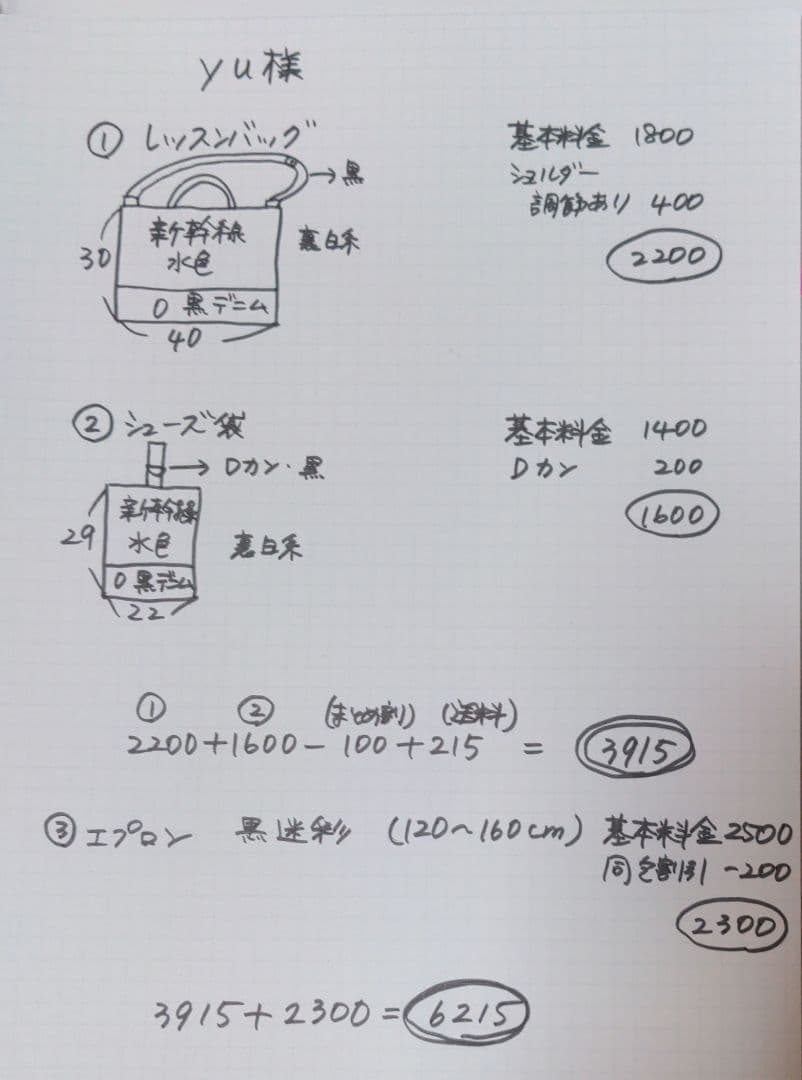 yu様
① レッスンバッグ
基本料金 1800
ショルダー
調節あり 400
2200
→黒
新幹線
水色
裏白系
30
0 黒デニム
40
② シューズ袋
基本料金 1400
Dカン 200
1600
→ Dカン・黒
新幹線
水色
裏白系
29
0 黒デニム
22
① ② (まとめ割り) (送料)
2200+1600-100+215 = 3915
③ エプロン 黒迷彩 (120〜160cm) 基本料金2500
同包割引 -200
2300
3915+2300=6215